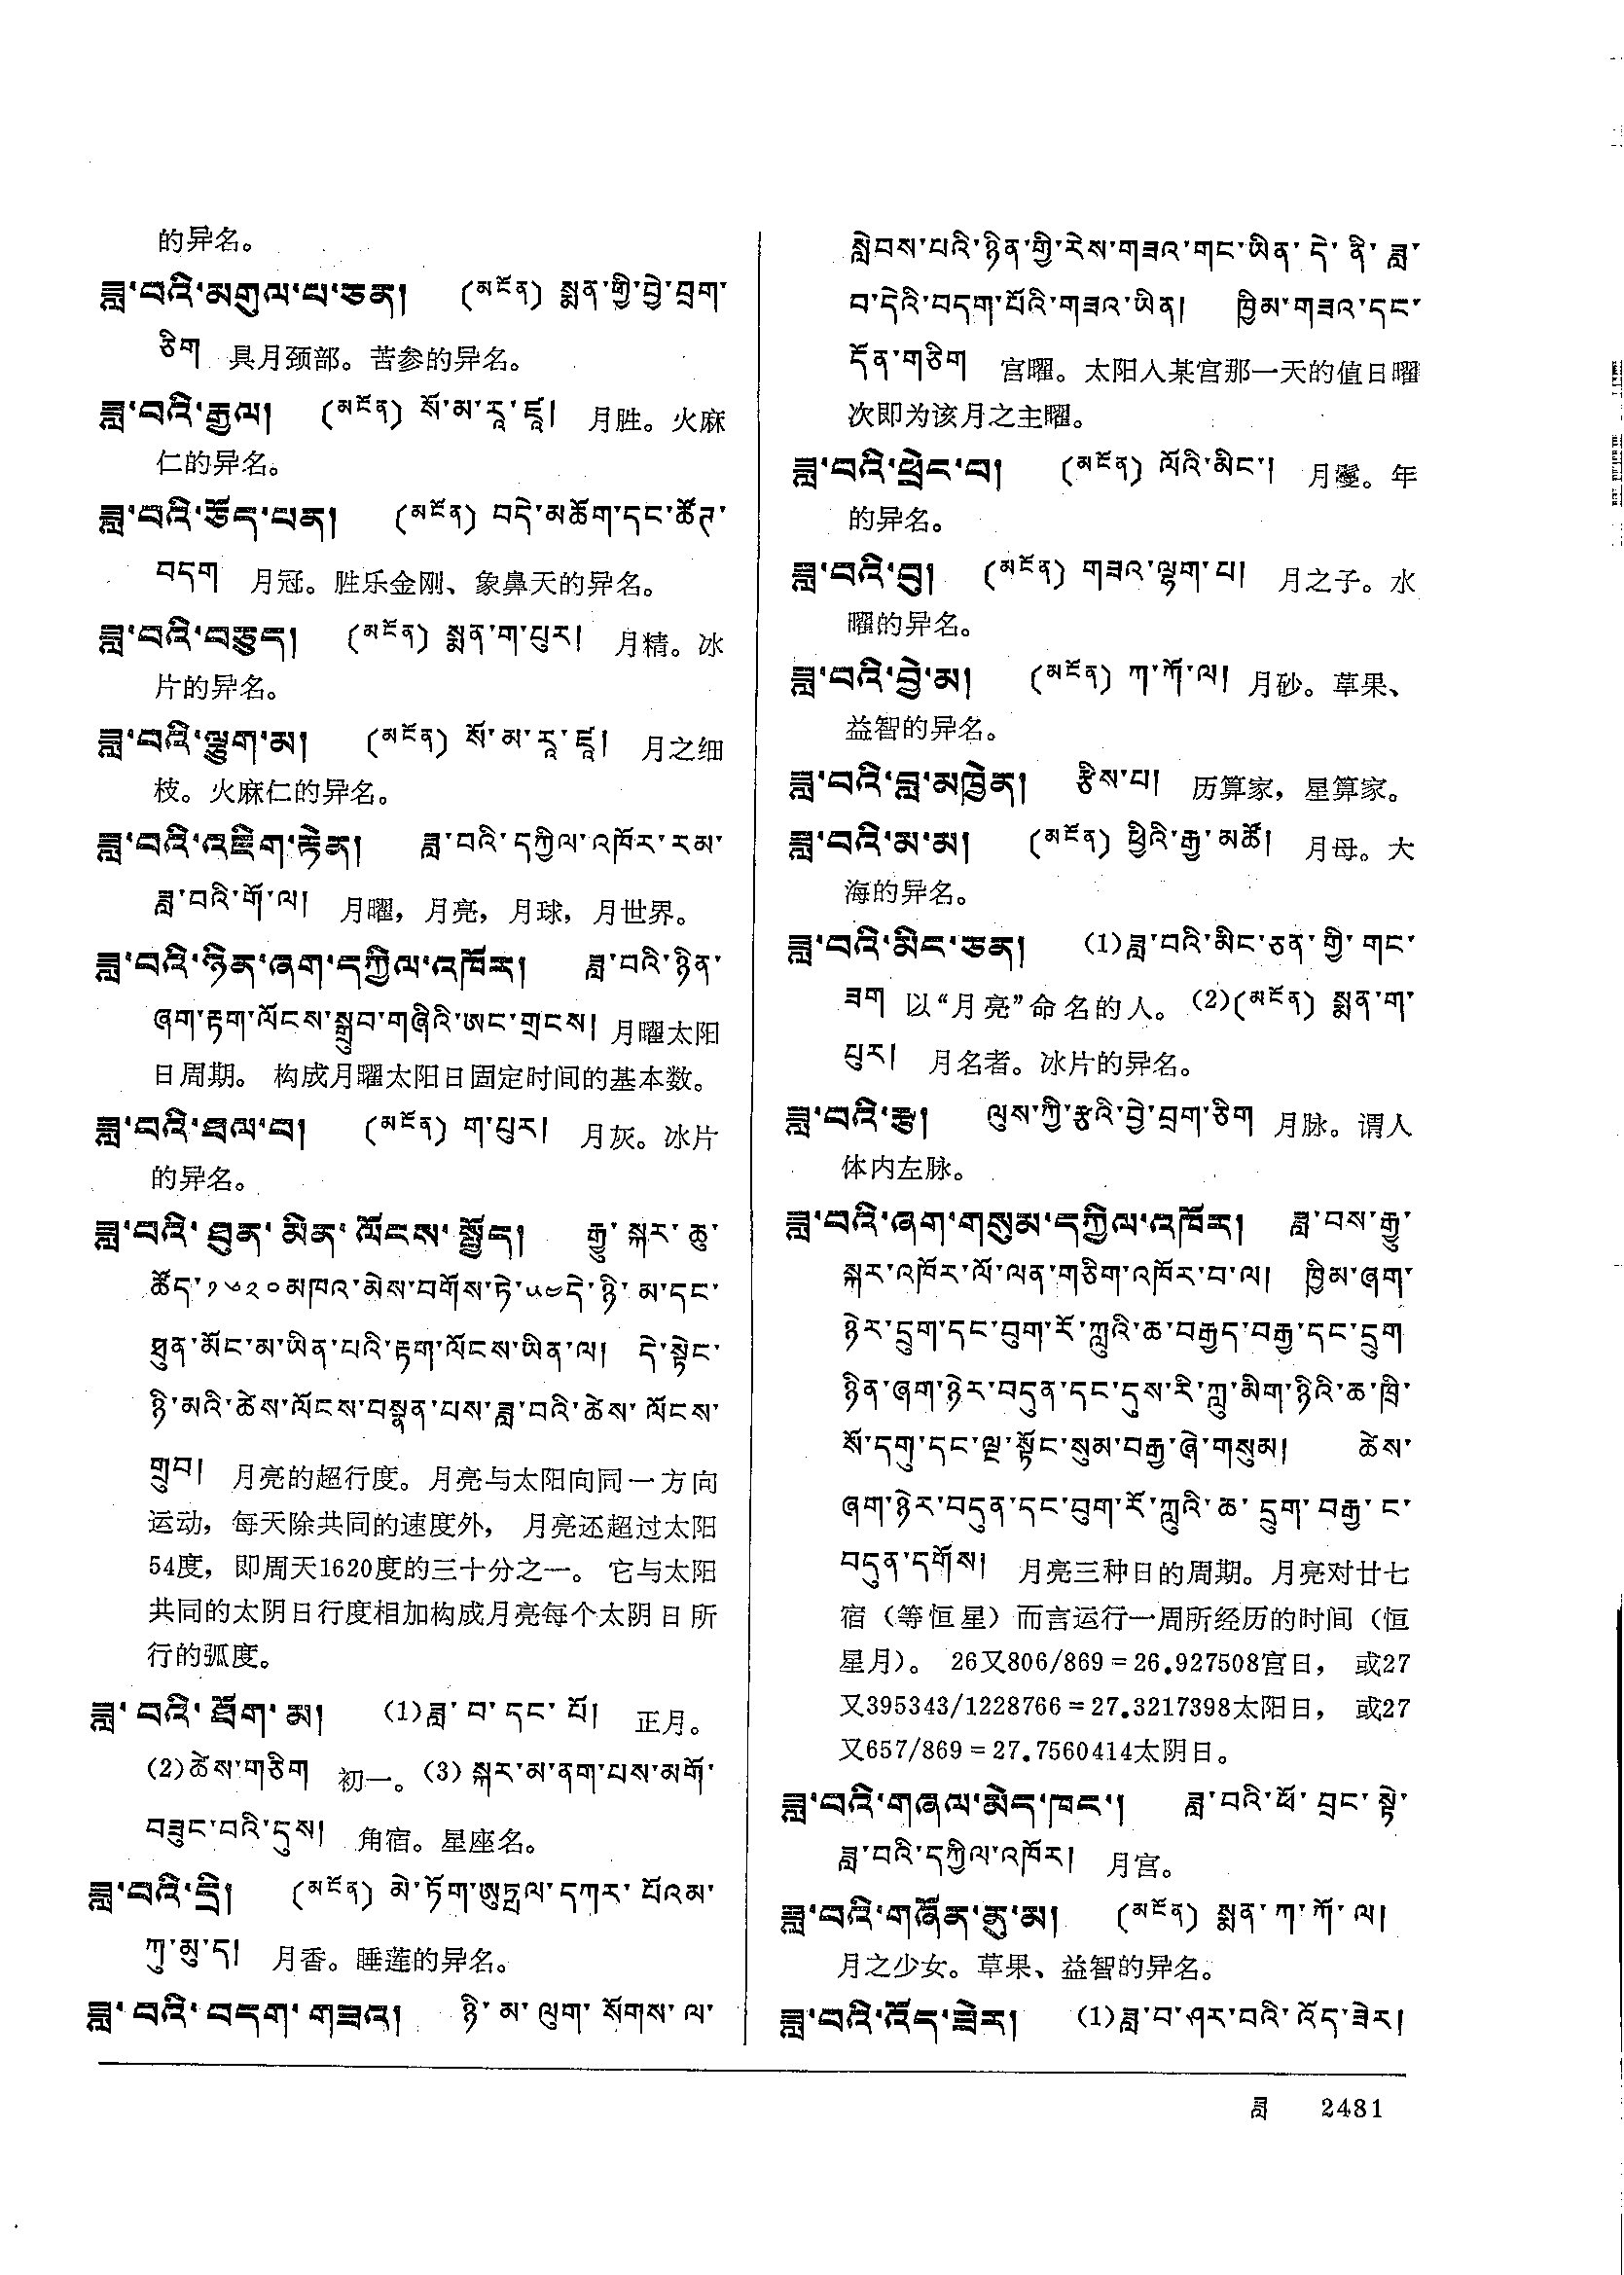 的异名。
ཟླ་བའི་མགུལ་པ་ཅན། (མངོན) སྨན་གྱི་བྱེ་བྲག་
ཅིག 具月颈部。苦参的异名。
ཟླ་བའི་རྒྱལ། (མངོན) སོ་མ་རཱ་ཛཱ། 月胜。火麻
仁的异名。
ཟླ་བའི་ཅོད་པན། (མངོན) བདེ་མཆོག་དང་ཚོཊ་
བདག 月冠。胜乐金刚、象鼻天的异名。
ཟླ་བའི་བཅུད། (མངོན) སྨན་ག་པུར། 月精。冰
片的异名。
ཟླ་བའི་ལྕུག་མ། (མངོན) སོ་མ་རཱ་ཛཱ། 月之细
枝。火麻仁的异名。
ཟླ་བའི་འཇིག་རྟེན། ཟླ་བའི་དཀྱིལ་འཁོར་རམ་
ཟླ་བའི་གོ་ལ། 月曜，月亮，月球，月世界。
ཟླ་བའི་ཉིན་ཞག་དཀྱིལ་འཁོར། ཟླ་བའི་ཉིན་
ཞག་རྟག་ལོངས་སྒྲུབ་གཞིའི་ཨང་གྲངས། 月曜太阳
日周期。 构成月曜太阳日固定时间的基本数。
ཟླ་བའི་ཐལ་བ། (མངོན) ག་པུར། 月灰。冰片
的异名。
ཟླ་བའི་ཐུན་མིན་ལོངས་སྤྱོད། རྒྱུ་སྐར་ཆུ་
ཚོད་༡༦༢༠མཁའ་མེས་བགོས་ཏེ་༥༤དེ་ཉི་མ་དང་
ཐུན་མོང་མ་ཡིན་པའི་རྟག་ལོངས་ཡིན་ལ། དེ་སྟེང་
ཉི་མའི་ཚེས་ལོངས་བསྣན་པས་ཟླ་བའི་ཚེས་ལོངས་
གྲུབ། 月亮的超行度。月亮与太阳向同一方向
运动，每天除共同的速度外， 月亮还超过太阳
54度，即周天1620度的三十分之一。 它与太阳
共同的太阴日行度相加构成月亮每个太阴日所
行的弧度。
ཟླ་བའི་ཐོག་མ། (1)ཟླ་བ་དང་པོ། 正月。
(2)ཚེས་གཅིག 初一。(3)སྐར་མ་ནག་པས་མགོ་
བཟུང་བའི་དུས། 角宿。星座名。
ཟླ་བའི་དྲི། (མངོན) མེ་ཏོག་ཨུཏྤལ་དཀར་པོའམ་
ཀུ་མུ་ད། 月香。睡莲的异名。
ཟླ་བའི་བདག་གཟའ། ཉི་མ་ལུག་སོགས་ལ་
སླེབས་པའི་ཉིན་གྱི་རེས་གཟའ་གང་ཡིན་དེ་ནི་ཟླ་
བ་དེའི་བདག་པོའི་གཟའ་ཡིན། ཁྱིམ་གཟའ་དང་
དོན་གཅིག 宫曜。太阳入某宫那一天的值日曜
次即为该月之主曜。
ཟླ་བའི་ཕྲེང་བ། (མངོན) ལོའི་མིང་། 月鬘。年
的异名。
ཟླ་བའི་བུ། (མངོན) གཟའ་ལྷག་པ། 月之子。水
曜的异名。
ཟླ་བའི་བྱེ་མ། (མངོན) ཀ་ཀོ་ལ། 月砂。草果、
益智的异名。
ཟླ་བའི་བླ་མཁྱེན། རྩིས་པ། 历算家，星算家。
ཟླ་བའི་མ་མ། (མངོན) ཕྱིའི་རྒྱ་མཚོ། 月母。大
海的异名。
ཟླ་བའི་མིང་ཅན། (1)ཟླ་བའི་མིང་ཅན་གྱི་གང་
ཟག 以“月亮”命名的人。(2)(མངོན) སྨན་ག་
པུར། 月名者。冰片的异名。
ཟླ་བའི་རྩ། ལུས་ཀྱི་རྩའི་བྱེ་བྲག་ཅིག 月脉。谓人
体内左脉。
ཟླ་བའི་ཞག་གསུམ་དཀྱིལ་འཁོར། ཟླ་བས་རྒྱུ་
སྐར་འཁོར་ལོ་ལན་གཅིག་འཁོར་བ་ལ། ཁྱིམ་ཞག་
ཉེར་དྲུག་དང་བུག་རོ་ཀླུའི་ཆ་བརྒྱད་བརྒྱ་དང་དྲུག
ཉིན་ཞག་ཉེར་བདུན་དང་དུས་རི་ཀླུ་མིག་ཉིའི་ཆ་ཁྲི་
སོ་དགུ་དང་ལྔ་སྟོང་སུམ་བརྒྱ་ཞེ་གསུམ། ཚེས་
ཞག་ཉེར་བདུན་དང་བུག་རོ་ཀླུའི་ཆ་དྲུག་བརྒྱ་ང་
བདུན་དགོས། 月亮三种日的周期。月亮对廿七
宿（等恒星）而言运行一周所经历的时间（恒
星月）。 26又806/869＝26.927508宫日， 或27
又395343/1228766＝27.3217398太阳日， 或27
又657/869＝27.7560414太阴日。
ཟླ་བའི་གཞལ་མེད་ཁང་། ཟླ་བའི་ཕོ་བྲང་སྟེ་
ཟླ་བའི་དཀྱིལ་འཁོར། 月宫。
ཟླ་བའི་གཞོན་ནུ་མ། (མངོན) སྨན་ཀ་ཀོ་ལ།
月之少女。草果、益智的异名。
ཟླ་བའི་འོད་ཟེར། (1)ཟླ་བ་ཤར་བའི་འོད་ཟེར།
ཟླ 2481